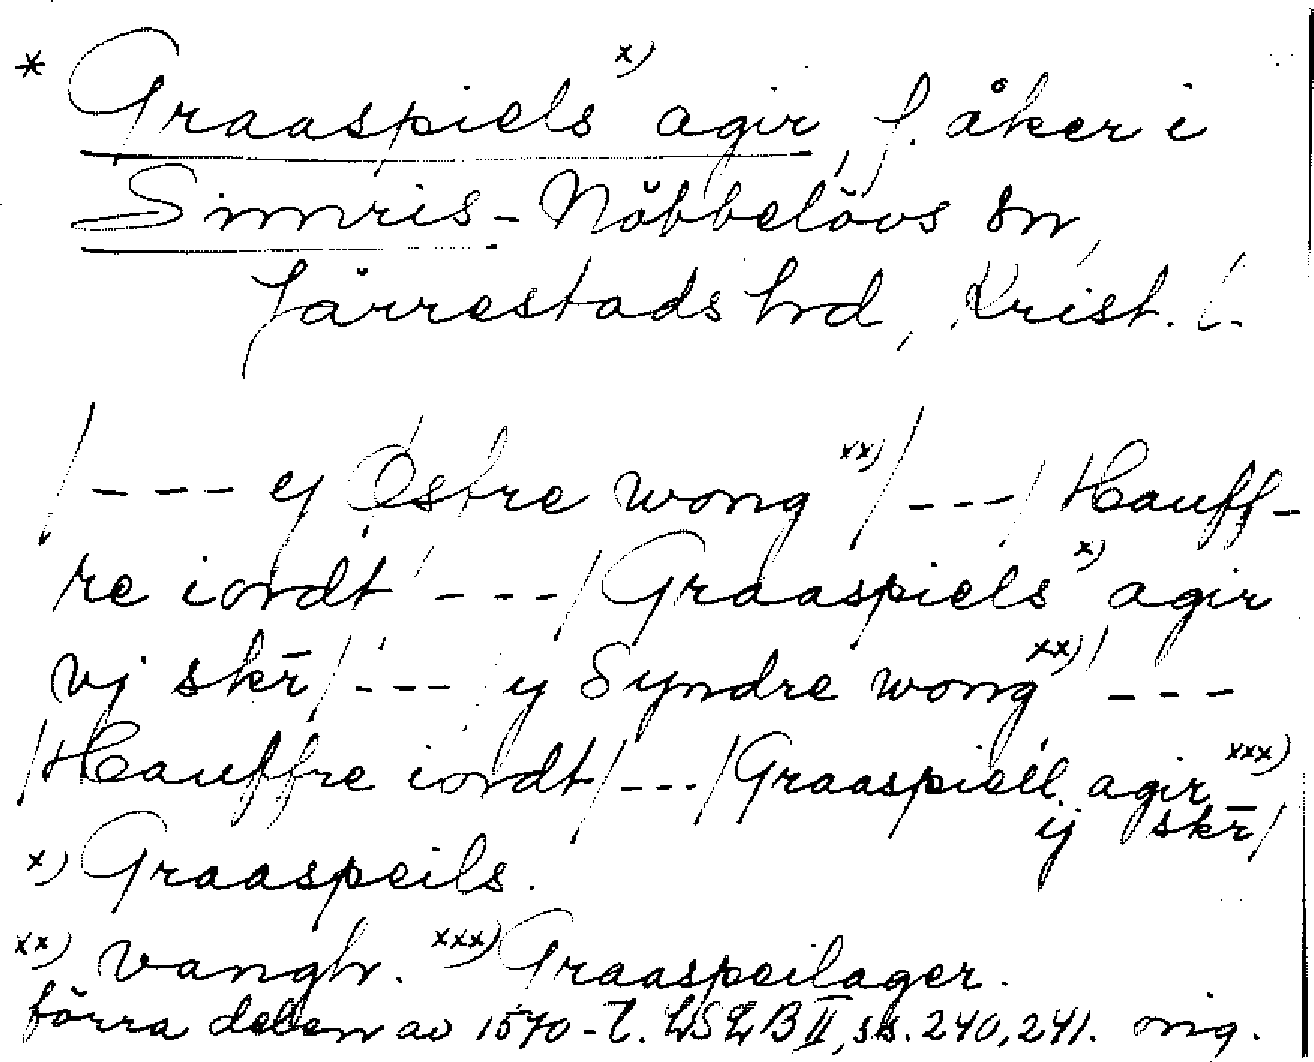 * Graaspiels x) agir, f. åker i
Simris-Nöbbelövs sn,
Järrestads hd, Krist. l.
/--- y Östre wong xx)/---/Hauff-
re iordt ---/Graaspiels x) agir
vj skr̄/--- y Syndre wong xx) ---
/Hauffre iordt/---/Graaspiell agir xxx)
ij skr̄/
x) Graaspeils.
xx) vangh. xxx) Graaspeilager.
förra delen av 1570-t. LSLB II, ss. 240, 241. orig.